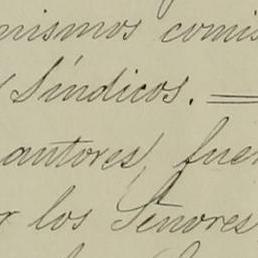 mismos comis
Síndicos. =
autores, fuer
r los Señores